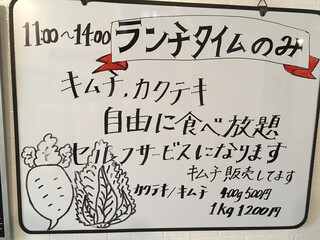 11:00〜14:00 ランチタイムのみ
キムチ、カクテキ
自由に食べ放題
セルフサービスになります
キムチ販売してます
カクテキ/キムチ 400g 500円
1kg 1200円